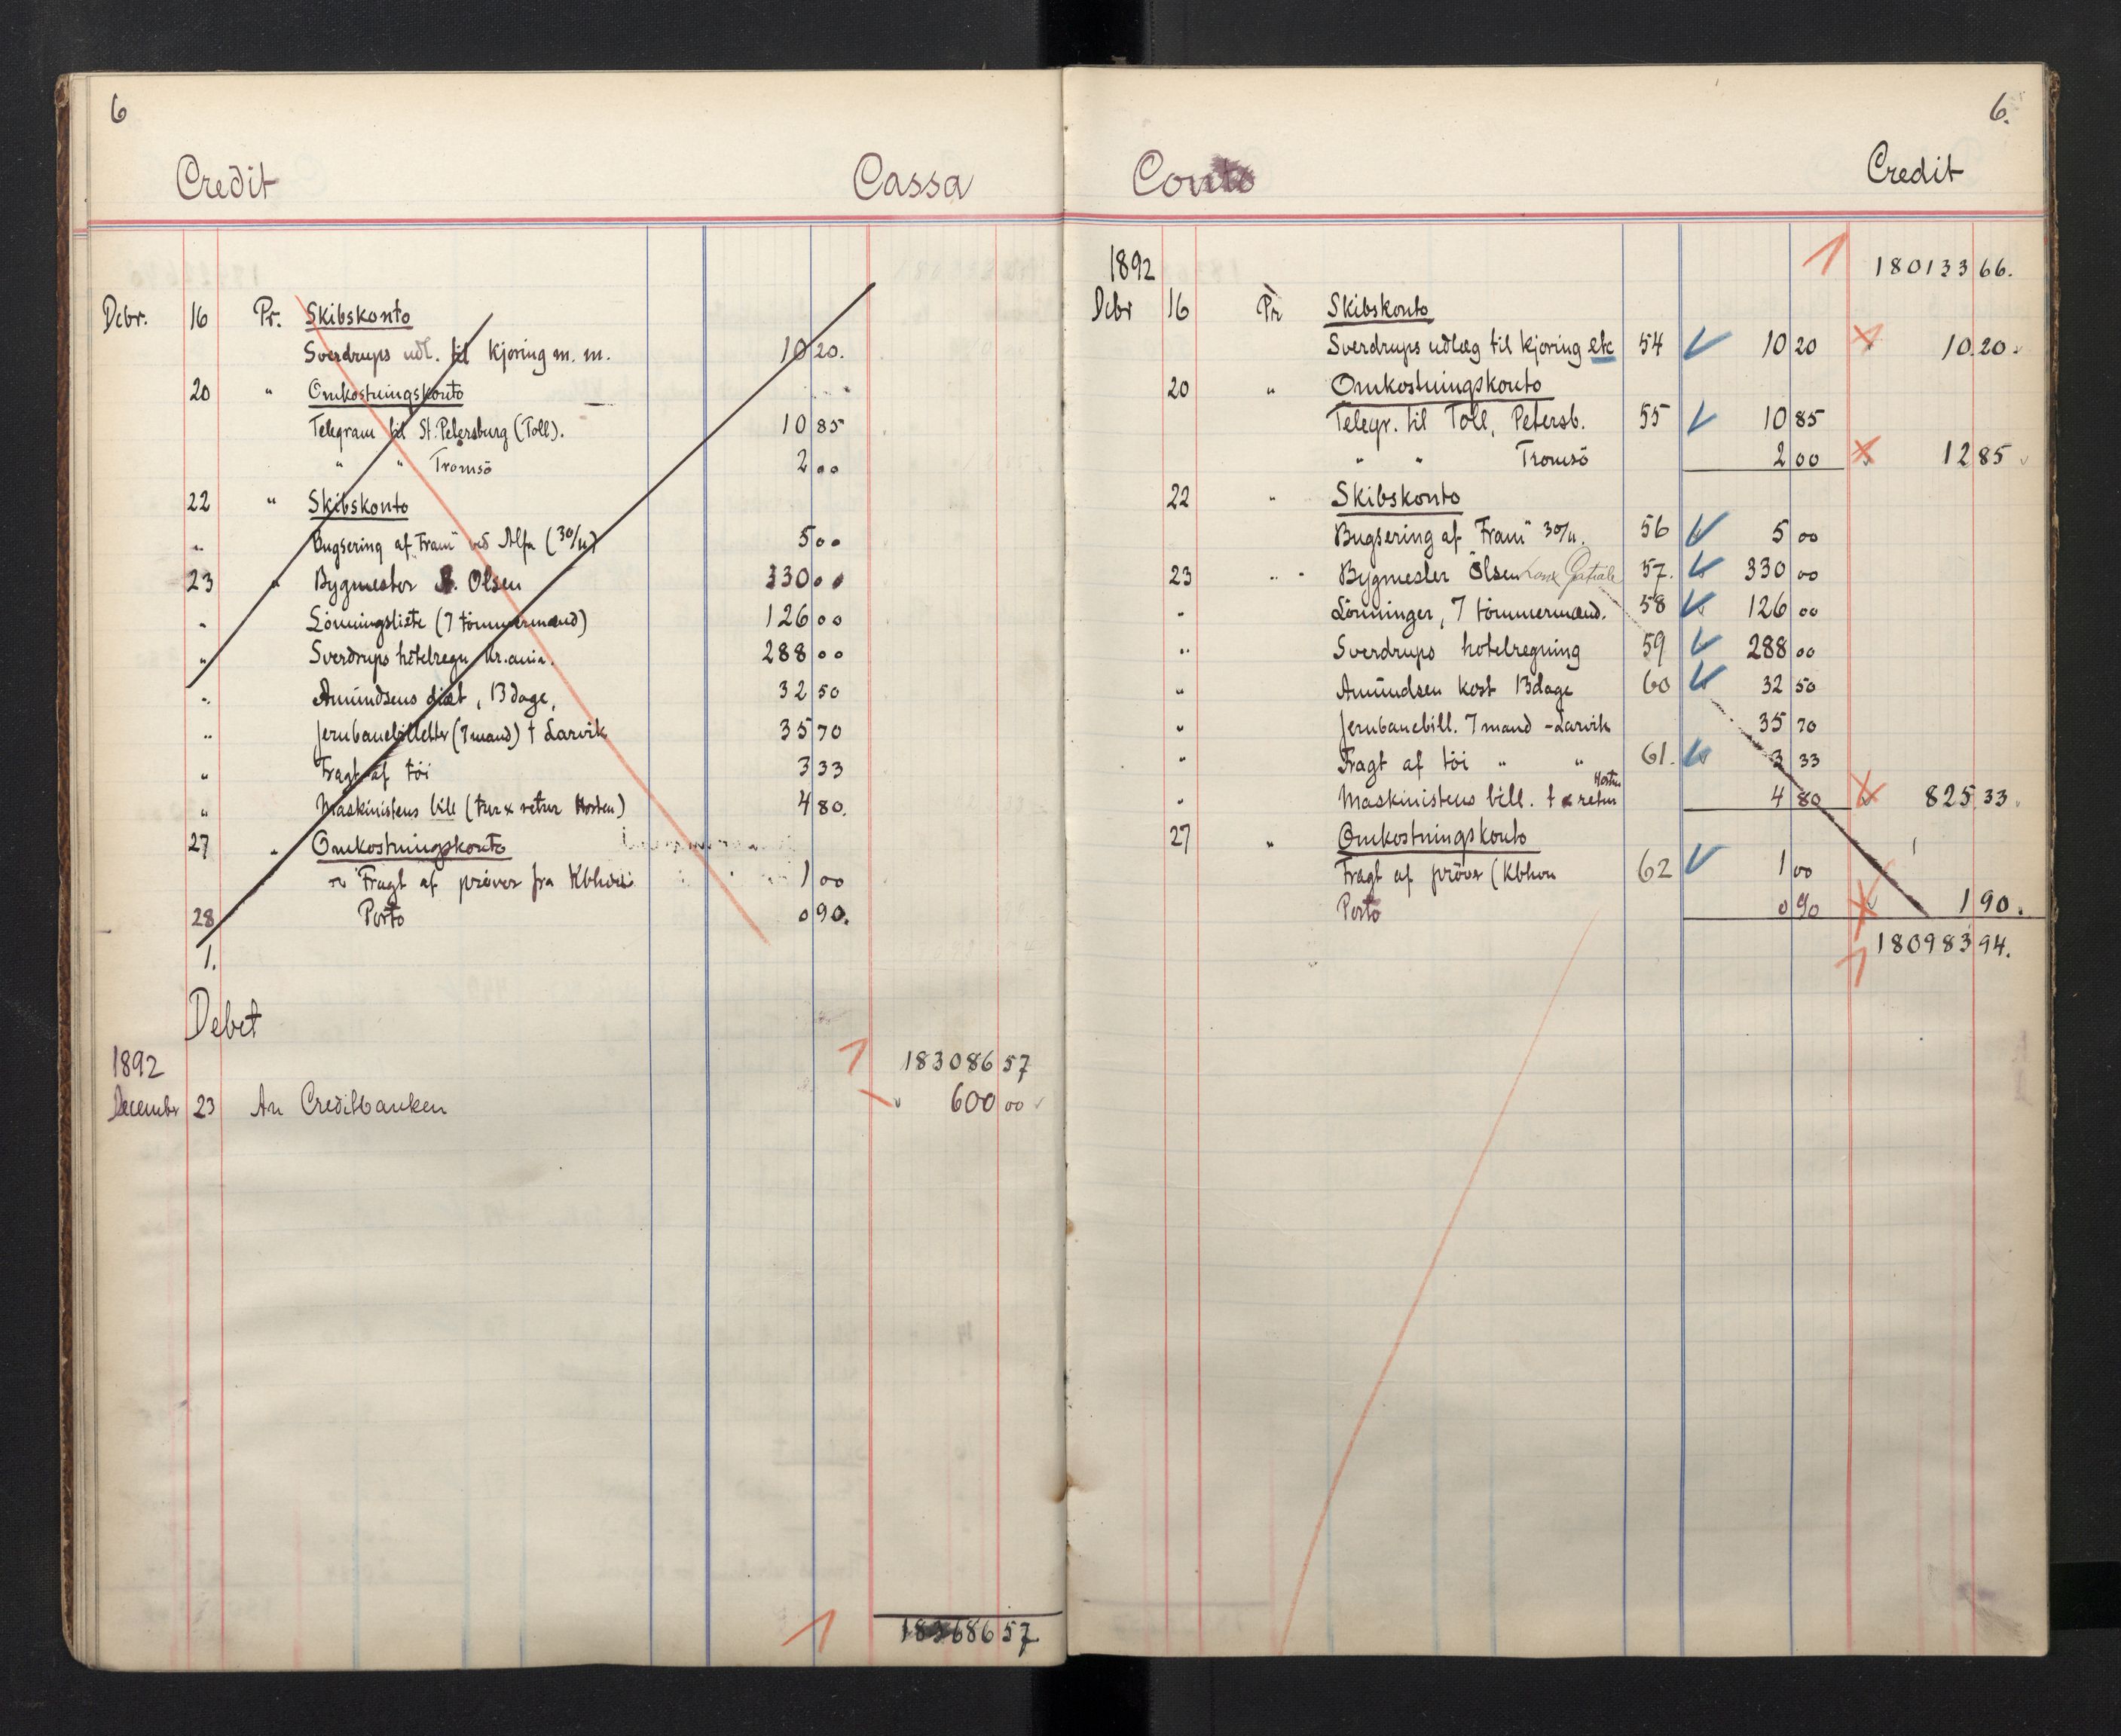 6
Credit Cassa
Dcbr. 16 Pr. Skibskonto
Sverdrups udl. til kjøring m. m. 10 20.
20 " Omkostningskonto
Telegram til St. Petersburg (Toll). 10 85
" " Tromsö 2 00
22 " Skibskonto
" Bugsering af "Fram" ved Alfa (30/11) 5 00
23 " Bygmester Olsen 330 00
" Lönningsliste (7 tömmermænd) 126 00
" Sverdrups hotelregn Kr.ania. 288 00
" Amundsens diæt, 13 dage, 32 50
" Jernbanebilletter (7 mand) t Larvik 35 70
" Fragt af töi 3 33
" Maskinistens bill (tur x retur Horten) 4 80.
27 " Omkostningskonto
Fragt af pröver fra Kbhvn 1 00
28 Porto 0 90.
1.
Debet
1892 18308657
December 23 An Creditbanken 600 00
18368657
6.
Conto Credit
1892 18013366.
Dcbr 16 Pr Skibskonto
Sverdrups udlæg til kjøring etc 54 10 20 10.20.
20 " Omkostningskonto
Telegr. til Toll, Petersb. 55 10 85
" " Tromsö 2 00 12 85
22 " Skibskonto
Bugsering af "Fram" 30/11. 56 5 00
23 " " Bygmester Olsen 57. 330 00
" Lönninger, 7 tömmermænd. 58 126 00
" Sverdrups hotelregning 59 288 00
" Amundsen kost 13 dage 60 32 50
" Jernbanebill. 7 mand - Larvik 35 70
" Fragt af töi " " 61. 3 33
" Maskinistens bill. t x retur Horten 4 80 825 33.
27 " Omkostningskonto
Fragt af pröver (Kbhvn 62 1 00
Porto 0 90 1 90.
18098394.